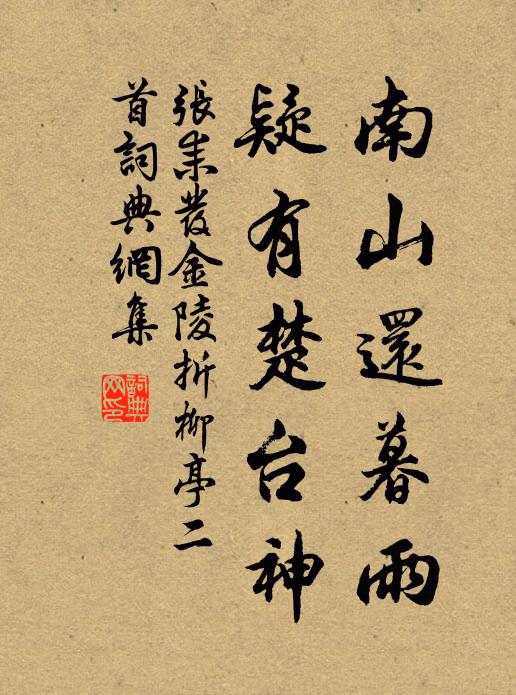 南山還暮雨
疑有楚台神
張耒發金陵折柳亭二
首詞典網集
詞典
网印